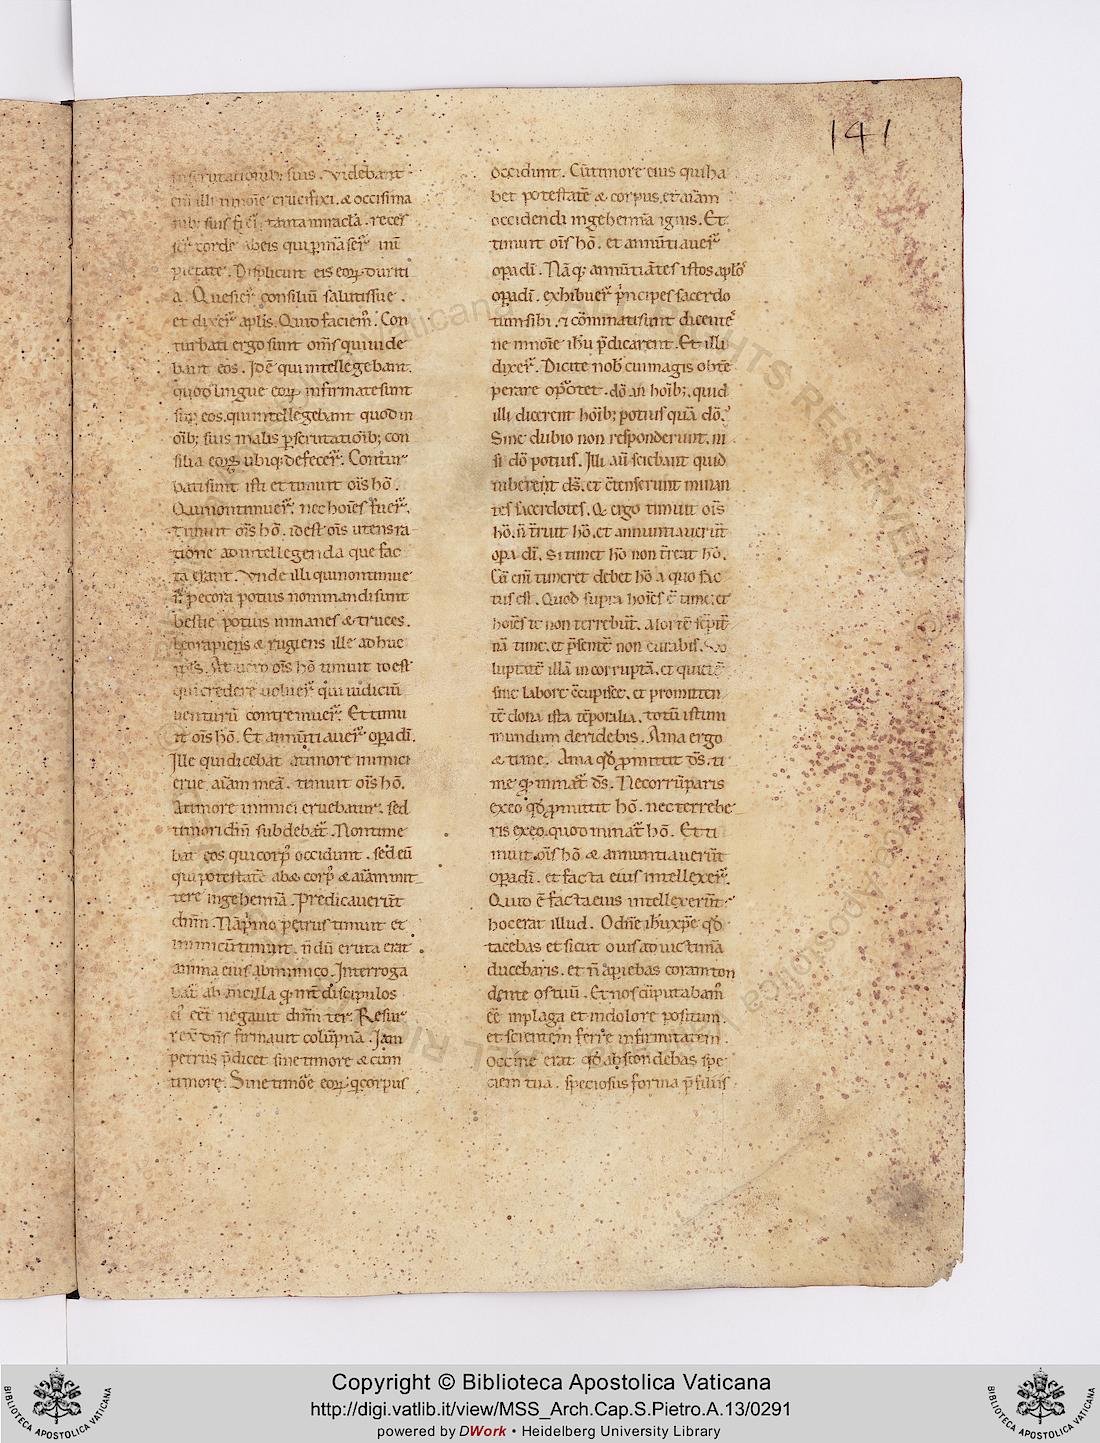 141
in scrutationib; suis. Videbant
eni illi in noīe crucifixi. & occisi ma
nib; suis fieri tanta miracła. reces
corde abeis qui pmāser̄ in ī
pietate. Displicuit eis eoꝝ duriti
a. Quesier̄ consiliū salutis sue.
et dixer̄ aplis. Quid faciem̄. Con
turbati ergo sunt om̄s qui uide
bant eos. Idē qui intellegebant.
quod lingue eoꝝ infirmate sunt
sup eos. qui intellegebant quod in
oīb; suis malis pscrutatioīb; con
silia eoꝝ ubiq; defecer̄. Contur
bati sunt isti et timuit ois hō.
Qui non timuer̄. nec hoīes fuer̄.
timuit ois hō. id est ois utens ra
tione ad intellegenda que fac
ta erant. Vnde illi qui non timue
r̄ pecora potius nominandi sunt
bestie potius inmanes & truces.
Leo rapiens & rugiens ille adhuc
At uero ois hō timuit id est
qui credere uoluer̄. qui iudiciū
uenturū contremuer̄. Et timu
it ois hō. Et annūtiauer̄ opa dī.
Ille qui dicebat a timore inimici
erue aīam meā. timuit ois hō.
A timore inimici eruebatur. sed
timori dn̄i subdebat̄. Non time
bat eos qui corp̄ occidunt. sed eū
qui potestatē abet corp̄ & aīam mit
tere in gehennā. Predicauerūt
dn̄m. Nā pmo petrus timuit et
inimicū timuit. n̄dū eruta erat
anima eius ab inimico. Interroga
bat̄ ab ancilla qꝫ int̄ discipulos
ei ēēt negauit dn̄m ter. Resur
rex̄ dn̄s firmauit colūpna. Iam
petrus p̄dicet sine timore & cum
timore. Sine timore eoꝝ q corpus
occidunt. Cū timore eius qui ha
bet potestatē & corpus et aīam
occidendi in gehennā ignis. Et
timuit ois hō. et annūtiauer̄
opa dī. Nāq; annūtiātes istos aplos
opa dī. exhibuer̄ p̄ncipes sacerdo
tum sibi. & cōminati sunt dicente
ne in noīe ihū p̄dicarent. Et illi
dixer̄. Dicite nob̄ cui magis obte
perare oportet. dō an hoīb;. quid
illi dicerent hoīb; potius quā dō.
Sine dubio non responderunt. ni
si dō potius. Illi aū sciebant quid
iuberent ds̄. et cōtenserunt minan
tes sacerdotes. Q ergo timuit ois
hō. n̄ t̄ruit hō. et annuntiauerūt
opa dī. Si timet hō non t̄reat hō.
Eū enī timeret debet hō a quo fac
tus est. Quod supra hoīes ē time. et
hoīes te non terrebūt. Mortē sēpit̄
nā time. et p̄sentē non curabis. Vo
luptatē illā incorruptā. et quietē
sine labore cōcupisce. et promitten
tē dona ista tēporalia. totū istum
mundum deridebis. Ama ergo
& time. Ama qd̄ pmittit ds̄. ti
me qꝫ minat̄ ds̄. Nec corrūparis
ex eo qd̄ pmittit hō. nec terrebe
ris ex eo quod minat̄ hō. Et ti
muit ois hō & annuntiauerūt
opa dī. et facta eius intellexer̄.
Quid ē facta eius intellexerūt.
hoc erat illud. O dn̄e ihū xpē qd̄
tacebas et sicut ouis ad uictimā
ducebaris. et n̄ apiebas coram ton
dente os tuū. Et nos cūputabam̄
ēē in plaga et in dolore positum.
et scientem ferre infirmitatem.
Occine erat qd̄ abscondebas spe
ciem tua. speciosus forma p̄ filiis
Copyright © Biblioteca Apostolica Vaticana
http://digi.vatlib.it/view/MSS_Arch.Cap.S.Pietro.A.13/0291
powered by DWork • Heidelberg University Library
BIBLIOTECA APOSTOLICA VATICANA
BIBLIOTECA APOSTOLICA VATICANA